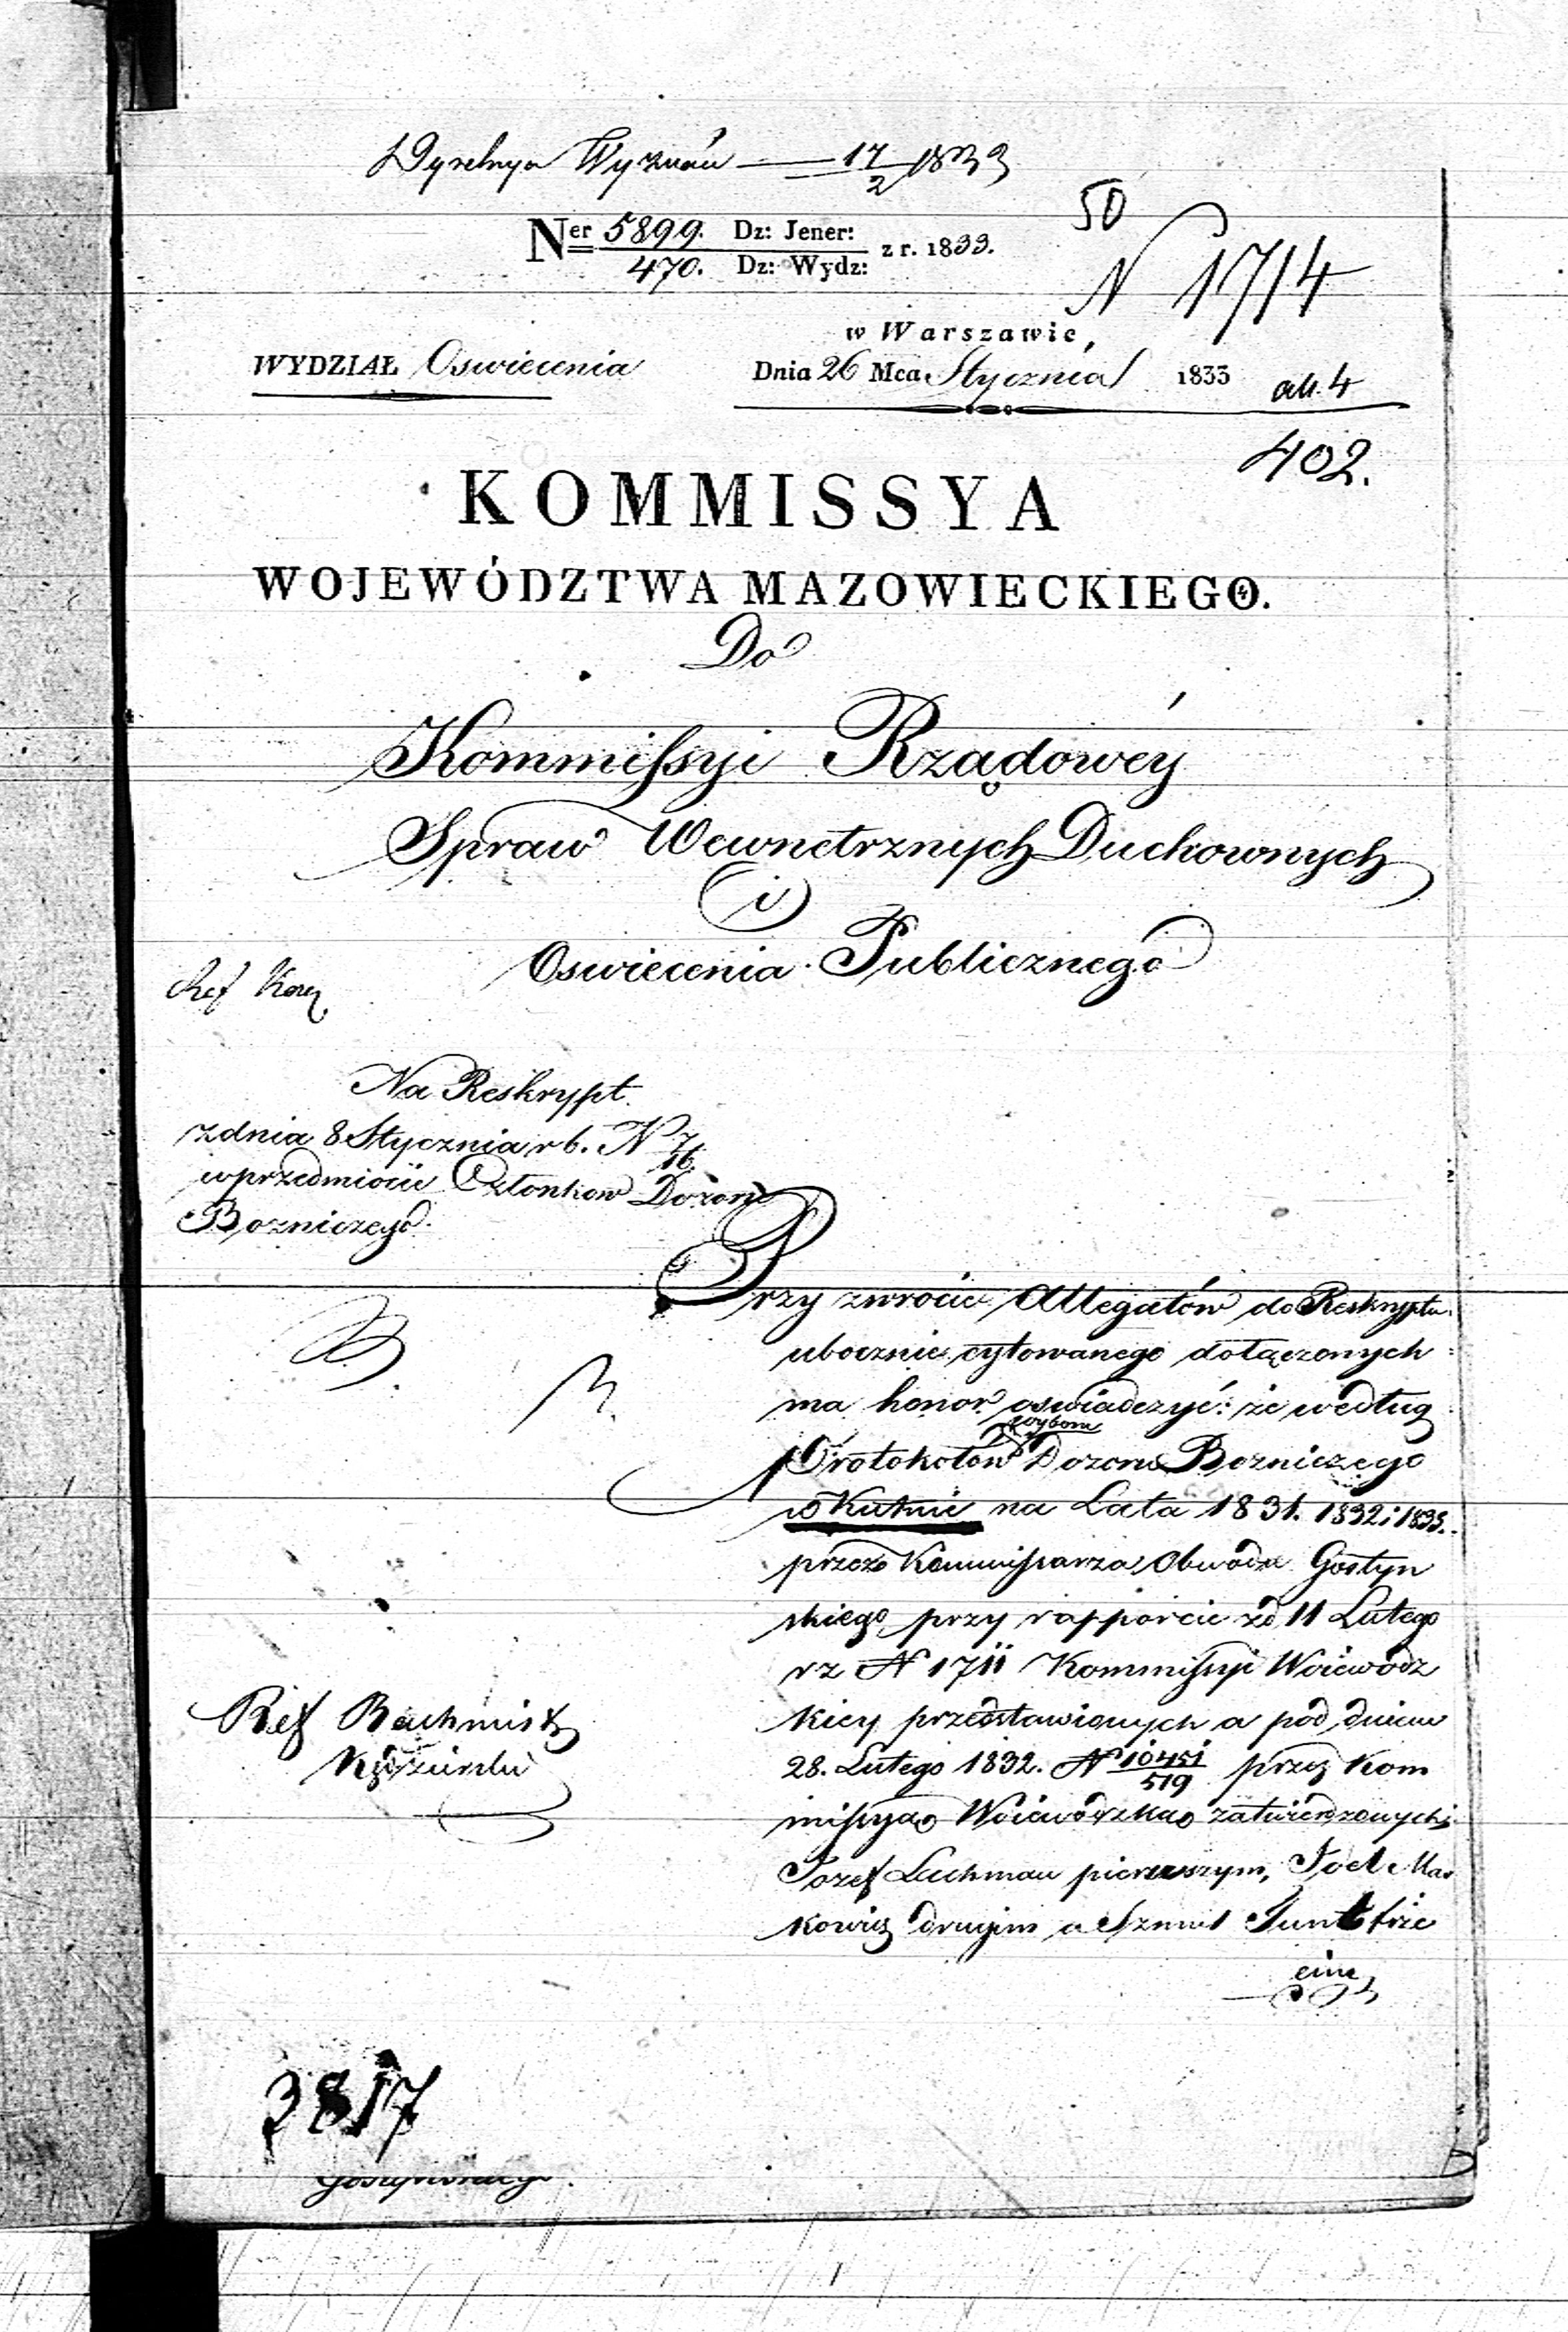 Dyrekcya Wyznań — 17/2 1833
50
Ner 5899. Dz: Jener: z r. 1833.
470. Dz: Wydz:
N 1714
w Warszawie,
WYDZIAŁ Oswiecenia Dnia 26 Mca Stycznia 1833
all. 4
402.
KOMMISSYA
WOJEWÓDZTWA MAZOWIECKIEGO.
Do
Kommissyi Rządowéy
Spraw Wewnetrznych Duchownych
i
Oswiecenia Publicznego
Ref
Na Reskrypt
z dnia 8 Stycznia r b. N 7/16
w przedmiocie Członkow Dozoru
Bozniczego
Przy zwrocie Allegatów do Reskryptu
ubocznie cytowanego dołączonych
ma honor oswiadczyć: że według
wyboru
Protokołów Dozoru Bozniczego
w Kutnie na Lata 1831. 1832 i 1833.
przez Kommissarza Obwodu Gostyn
skiego przy rapporcie z d 11 Lutego
r z N 1711 Kommissyi Woiewodz
kiey przedstawionych a pod dniem
28. Lutego 1832. N 10451/519 przez Kom
missyą Woiewódzką zatwierdzonych
Jozef Luchman pierwszym, Joel Mar
kowicz drugim a Szmul trze
cim
Ref
3817
Gostynskiego